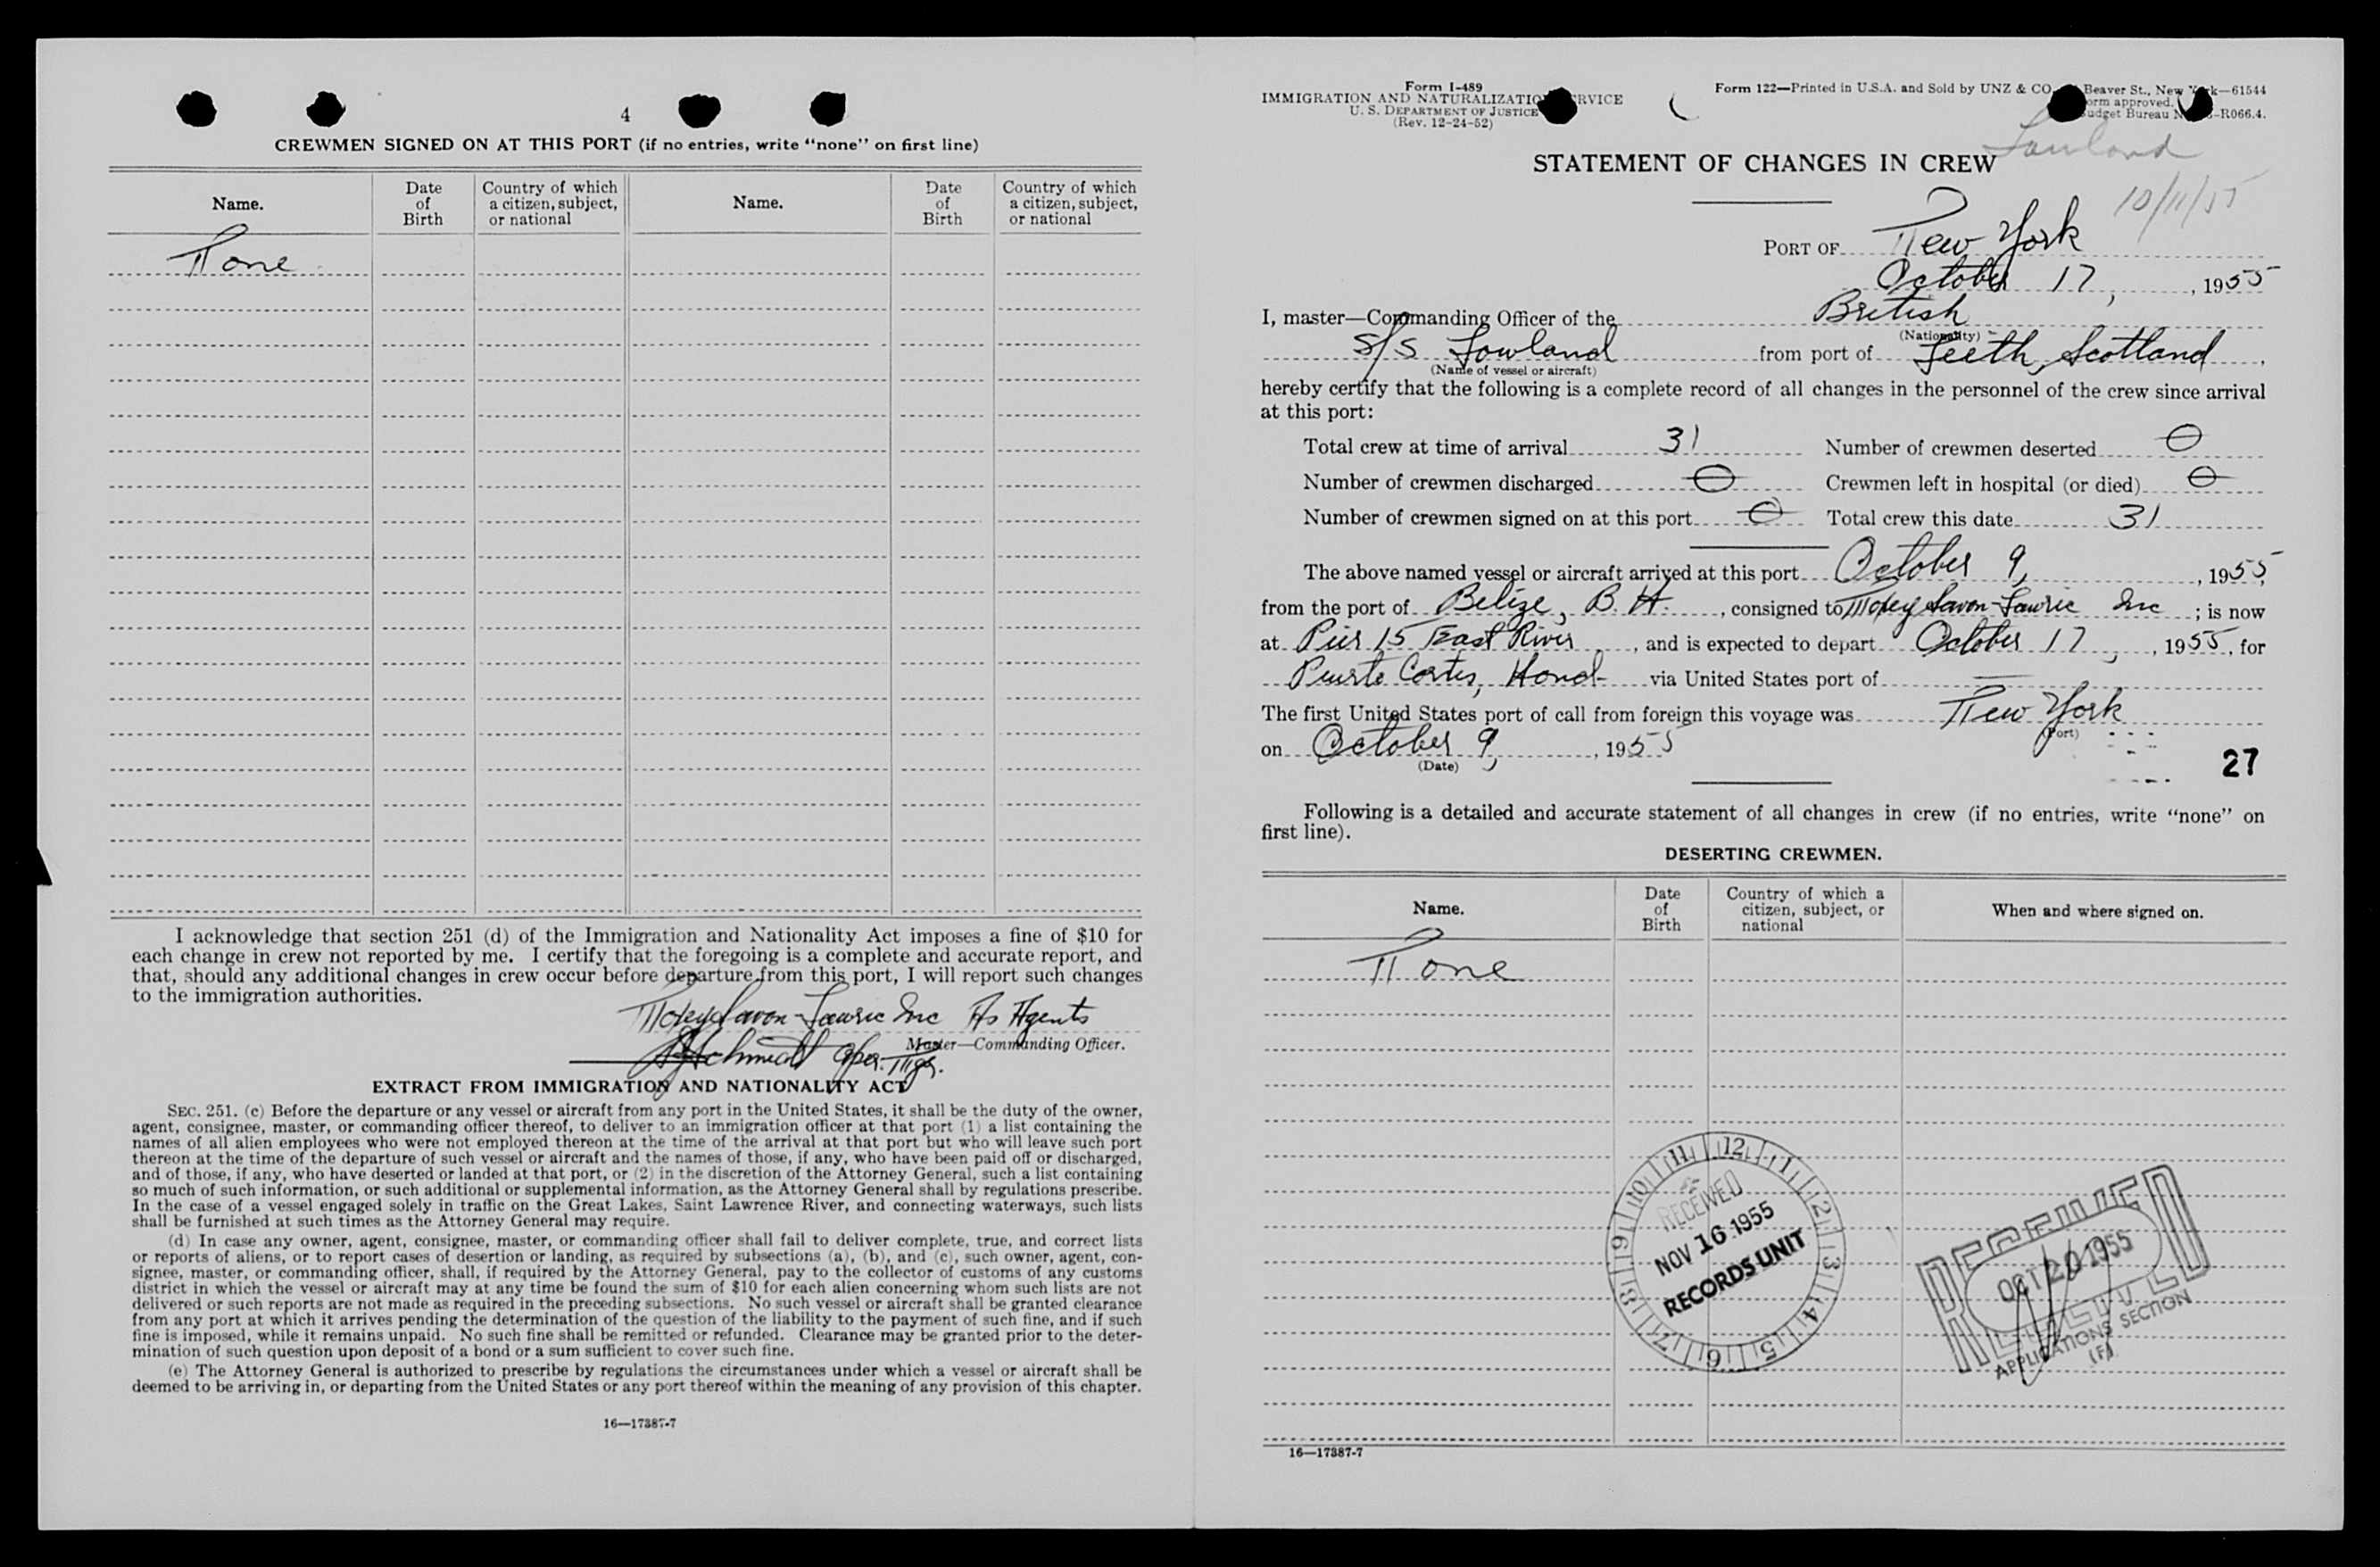 4
CREWMEN SIGNED ON AT THIS PORT (if no entries, write "none" on first line)
Name.
Date of Birth
Country of which a citizen, subject, or national
Name.
Date of Birth
Country of which a citizen, subject, or national
None
I acknowledge that section 251 (d) of the Immigration and Nationality Act imposes a fine of $10 for
each change in crew not reported by me. I certify that the foregoing is a complete and accurate report, and
that, should any additional changes in crew occur before departure from this port, I will report such changes
to the immigration authorities.
Inc As Agents
Master—Commanding Officer.
Schmidt Oper. Mgr.
EXTRACT FROM IMMIGRATION AND NATIONALITY ACT
SEC. 251. (c) Before the departure or any vessel or aircraft from any port in the United States, it shall be the duty of the owner,
agent, consignee, master, or commanding officer thereof, to deliver to an immigration officer at that port (1) a list containing the
names of all alien employees who were not employed thereon at the time of the arrival at that port but who will leave such port
thereon at the time of the departure of such vessel or aircraft and the names of those, if any, who have been paid off or discharged,
and of those, if any, who have deserted or landed at that port, or (2) in the discretion of the Attorney General, such a list containing
so much of such information, or such additional or supplemental information, as the Attorney General shall by regulations prescribe.
In the case of a vessel engaged solely in traffic on the Great Lakes, Saint Lawrence River, and connecting waterways, such lists
shall be furnished at such times as the Attorney General may require.
(d) In case any owner, agent, consignee, master, or commanding officer shall fail to deliver complete, true, and correct lists
or reports of aliens, or to report cases of desertion or landing, as required by subsections (a), (b), and (c), such owner, agent, con-
signee, master, or commanding officer, shall, if required by the Attorney General, pay to the collector of customs of any customs
district in which the vessel or aircraft may at any time be found the sum of $10 for each alien concerning whom such lists are not
delivered or such reports are not made as required in the preceding subsections. No such vessel or aircraft shall be granted clearance
from any port at which it arrives pending the determination of the question of the liability to the payment of such fine, and if such
fine is imposed, while it remains unpaid. No such fine shall be remitted or refunded. Clearance may be granted prior to the deter-
mination of such question upon deposit of a bond or a sum sufficient to cover such fine.
(e) The Attorney General is authorized to prescribe by regulations the circumstances under which a vessel or aircraft shall be
deemed to be arriving in, or departing from the United States or any port thereof within the meaning of any provision of this chapter.
16—17387-7
Form I-489
IMMIGRATION AND NATURALIZATION SERVICE
U. S. DEPARTMENT OF JUSTICE
(Rev. 12-24-52)
Form 122—Printed in U.S.A. and Sold by UNZ & CO. Beaver St., New York—61544
Form approved.
Budget Bureau -R066.4.
Lowland
10/11/55
STATEMENT OF CHANGES IN CREW
PORT OF New York
October 17, 1955
I, master—Commanding Officer of the British
(Nationality)
S/S Lowland from port of Leith, Scotland,
(Name of vessel or aircraft)
hereby certify that the following is a complete record of all changes in the personnel of the crew since arrival
at this port:
Total crew at time of arrival 31 Number of crewmen deserted 0
Number of crewmen discharged 0 Crewmen left in hospital (or died) 0
Number of crewmen signed on at this port 0 Total crew this date 31
The above named vessel or aircraft arrived at this port October 9, 1955,
from the port of Belize, B. H., consigned to Inc; is now
at Pier 15 East River, and is expected to depart October 17, 1955, for
Puerto Cortes, Hond- via United States port of —
The first United States port of call from foreign this voyage was New York
(Port)
on October 9, 1955
(Date)
27
Following is a detailed and accurate statement of all changes in crew (if no entries, write "none" on
first line).
DESERTING CREWMEN.
Name.
Date of Birth
Country of which a citizen, subject, or national
When and where signed on.
None
12 1 2 3 4 5 6 7 8 9 10 11
RECEIVED
NOV 16 1955
RECORDS UNIT
RECEIVED
OCT 20 1955
RECEIVED
APPLICATIONS SECTION
(F)
16—17387-7